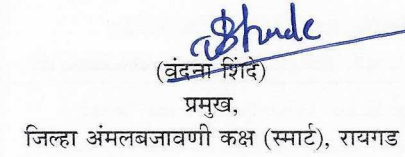 (वंदना शिंदे)
प्रमुख,
जिल्हा अंमलबजावणी कक्ष (स्मार्ट), रायगड